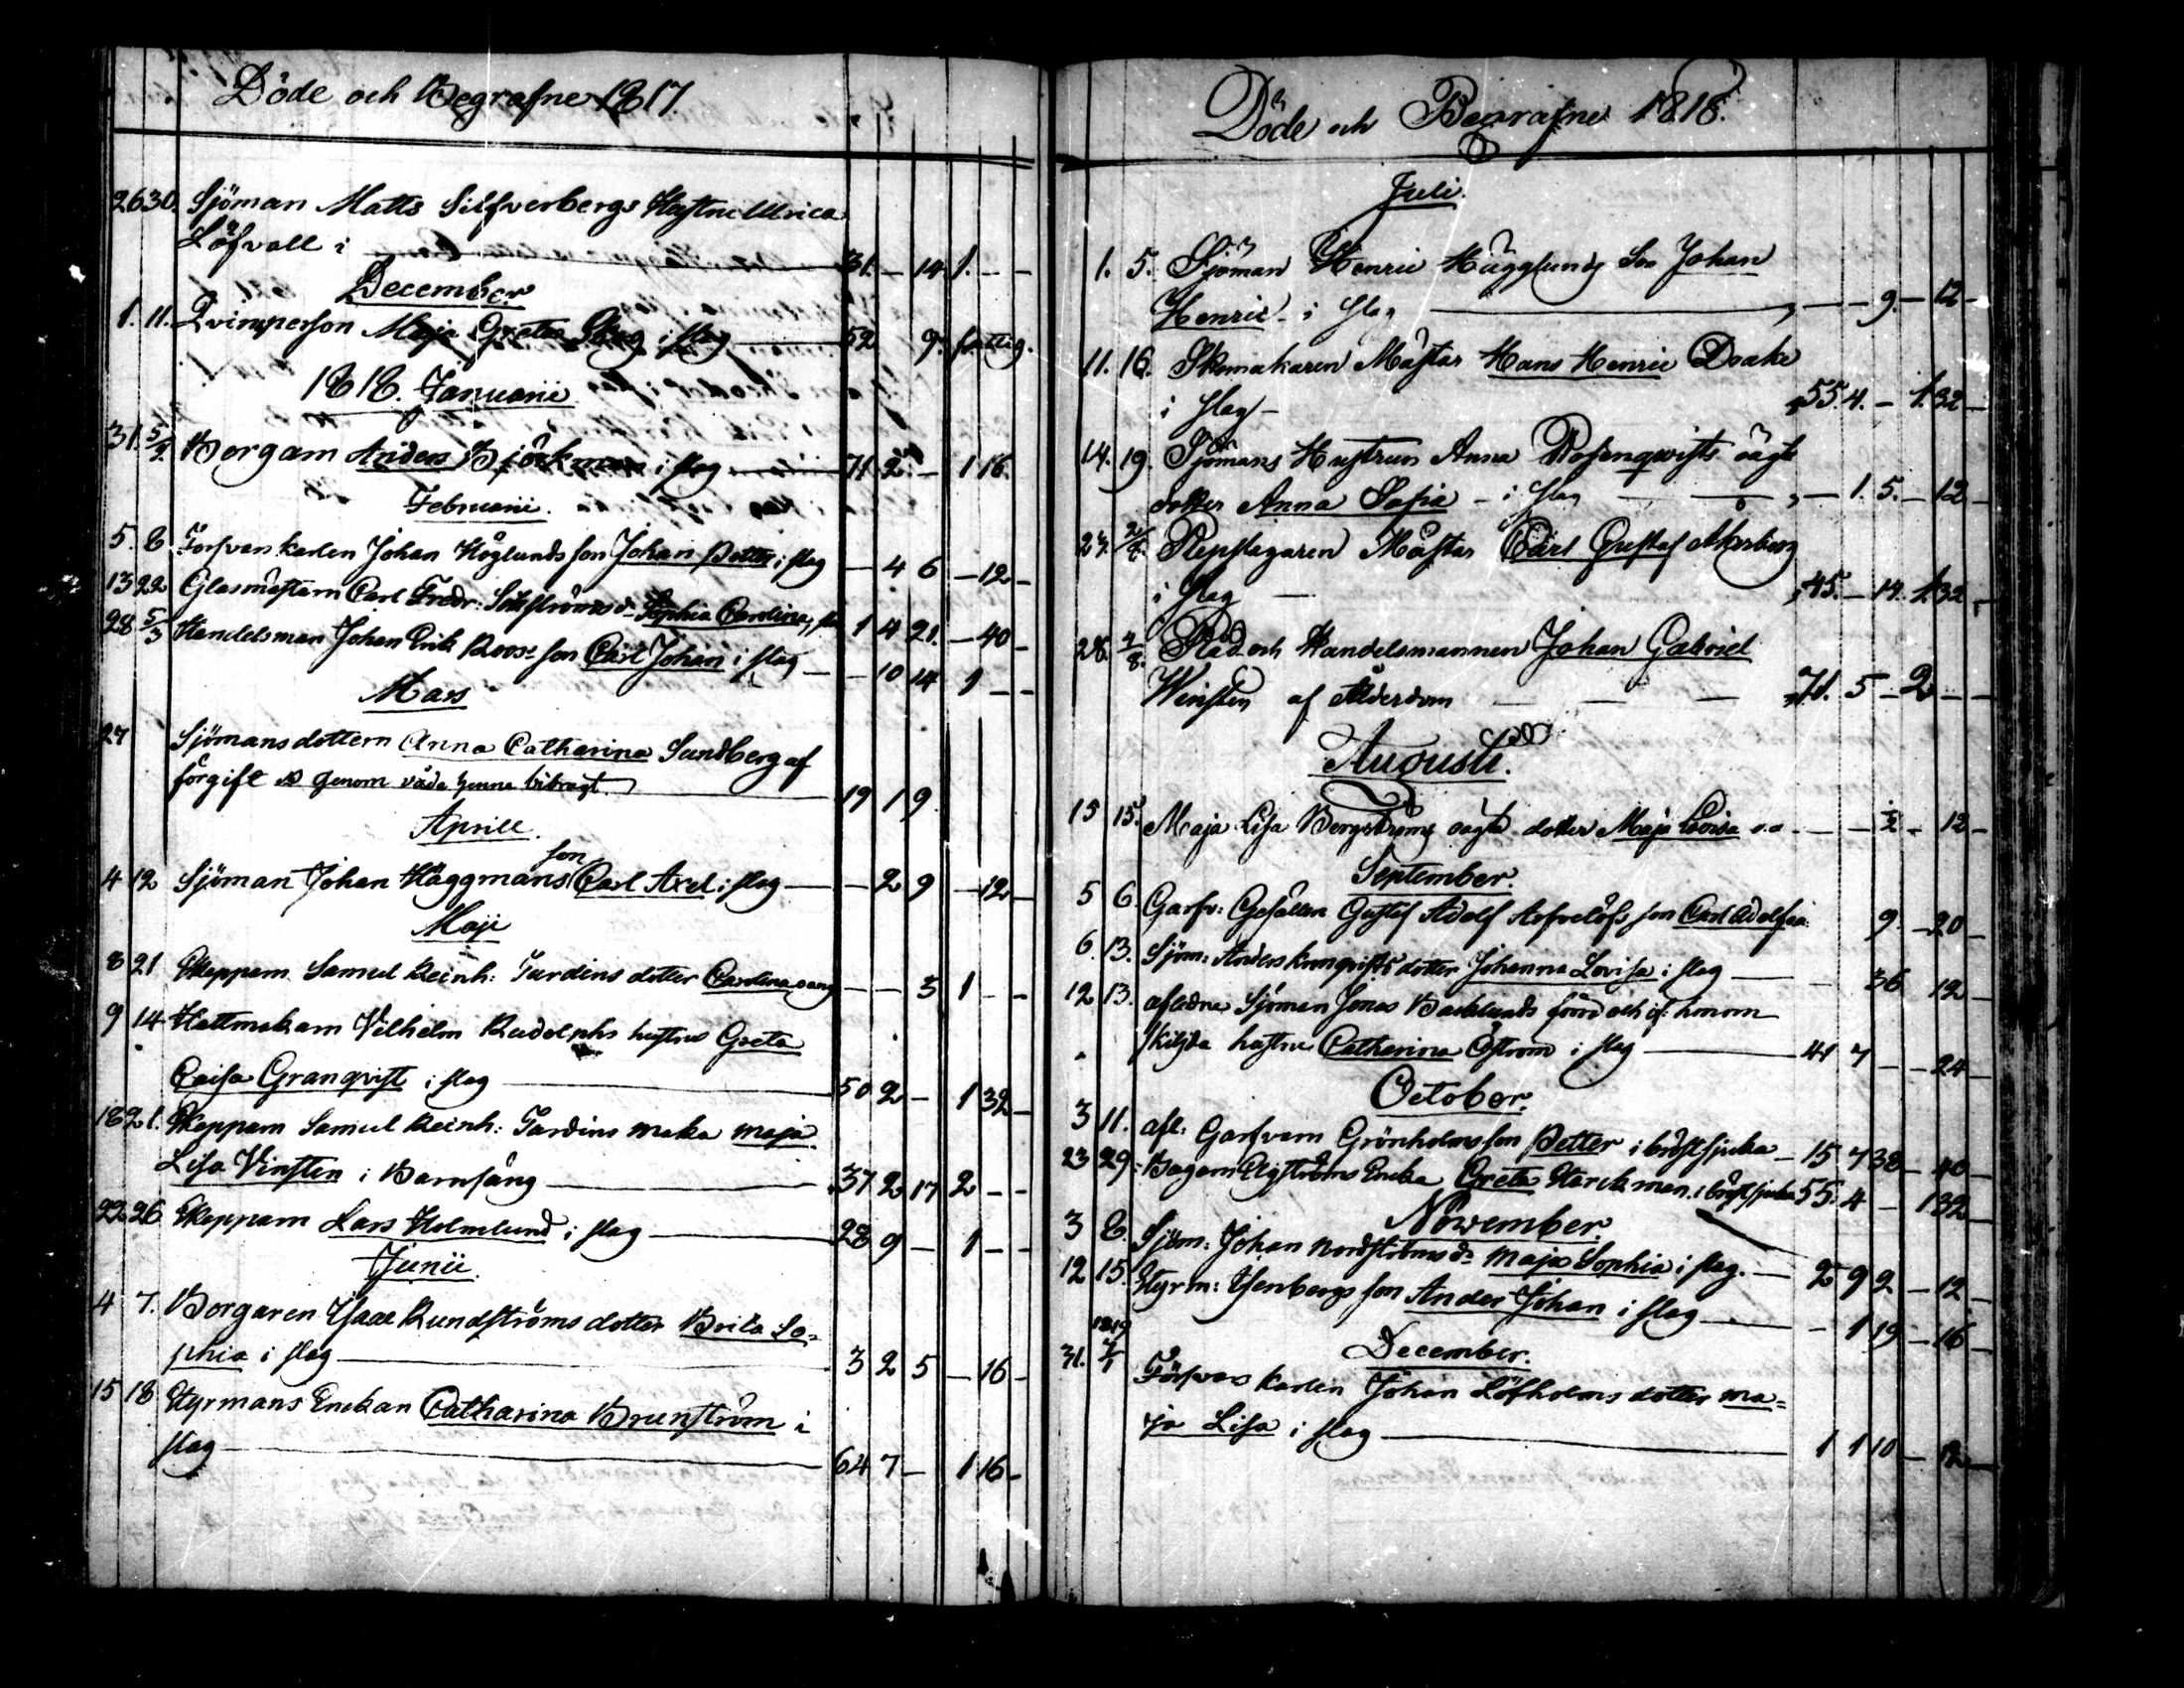 Döde och Begrafne 1817.
26 30. Sjöman Matts Silfverbergs Hustru Ulrica
Löfvall i — 31. — 14 1. — —
December.
1. 11. Qvinsperson Maja Greta Skog i slag — 52 9. fattig.
1818. Januarii
31. 5/2. Borgarn Anders Björkman i slag — 71 2 — 1 16.
Februarii.
5. 8. Försvars karlen Johan Höglunds son Johan Petter i slag — 4 6 — 12 —
13 22 Glasmästarn Carl Fredr: dr Sophia Carolina, 1 4 21. — 40 —
28 5/3 Handelsman Johan Erik Roos' son Carl Johan i slag — — 10 14 1 — —
Mars
27 Sjömans dottern Anna Catharina Sundberg af
förgift genom våda henne bibragt. — 19 1 9.
Aprill.
4 12 Sjöman Johan Häggmans son Carl Axel i slag — — 2 9 — 12 —
Maji
8 21 Skepparn Samuel Reinh: Tardins dotter Carolina oang — — 3 1 — —
9 14 Hattmakarn Vilhelm Rudolphs hustru Greta
Caisa Granqvist i slag — 50 2 — 1 32 —
18 21. Skepparn Samuel Reinh: Tardins maka Maja
Lisa Vinsten i Barnsäng — 37 2 17 2 — —
22 26 Skepparn Lars Holmlund i slag — 28 9 — 1 — —
Junii.
4 7. Borgaren Isaac Rundströms dotter Brita So-
phia i slag — 3 2 5 — 16 —
15 18 Styrmans Enckan Catharina Brunström i
slag — 64 7 — 1 16 —
Döde och Begrafne 1818.
Juli.
1. 5. Sjöman Henric Hägglunds Son Johan
Henric — i slag — — 9. — 12 —
11. 16. Skomakaren Mästar Hans Henric Doake
i slag — 55. 4. — 1. 32 —
14. 19. Sjömans Hustrun Anna Rosenqwists oägta
dotter Anna Sofia — i slag — — 1. 5. — 12 —
27. 2/8. Repslagaren Mästar Carl Gustaf Åkerberg
i slag — 45. — 14. 1. 32 —
28. 4/8. Råd och Handelsmannen Johan Gabriel
Winsten af Ålderdom — — — 71. 5 — 2 — —
Augusti.
15 15. Maja Lisa Bergströms oägta dotter Maja Lovisa — — ½ — 12 —
September.
5 6. Garfv: Gesällen Gustaf Adolf Arfvelöfs son Carl Adolf 9. — 20 —
6. 13. Sjöm: Anders Kronqvists dotter Johanna Lovisa i slag — — 3 6 12 —
12 13. afledne Sjöman Jonas Backlunds förra och if: honom
skiljda hustru Catharina Öström i slag — 41 7 — — 24 —
October.
3 11. afl: Garfvarn Grönholms son Petter i bröstsjuka — 15 7 38 — 40 —
23 29. Enka Greta Harckman i bröstsjuka 55. 4 — 1 32 —
November.
3 8. Sjöm: Johan Nordströms dr Maja Sophia i slag. — 2 9 2 — 12 —
12 15. Styrm: Isenbergs son Anders Johan i slag — — 1 19 — 16 —
December.
1819
31. 7/1 Försvars karlen Johan Löfholms dotter Ma-
ja Lisa i slag — 1 1 10 — 12 —